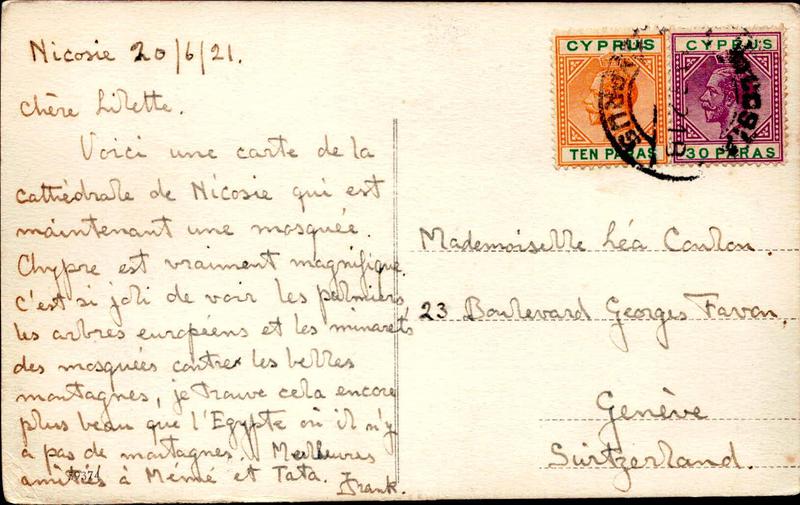 Nicosie 20/6/21.
Chère Lilette.
Voici une carte de la
cathédrale de Nicosie qui est
maintenant une mosquée.
Chypre est vraiment magnifique.
C'est si joli de voir les palmiers,
les arbres européens et les minarets
des mosquées contre les belles
montagnes, je trouve cela encore
plus beau que l'Egypte où il n'y
a pas de montagnes. Meilleures
amitiés à Mémé et Tata. Frank.
79374
CYPRUS
TEN PARAS
CYPRUS
30 PARAS
CYPRUS
Mademoiselle Léa Coulon.
23 Boulevard Georges Favon,
Genève
Switzerland.